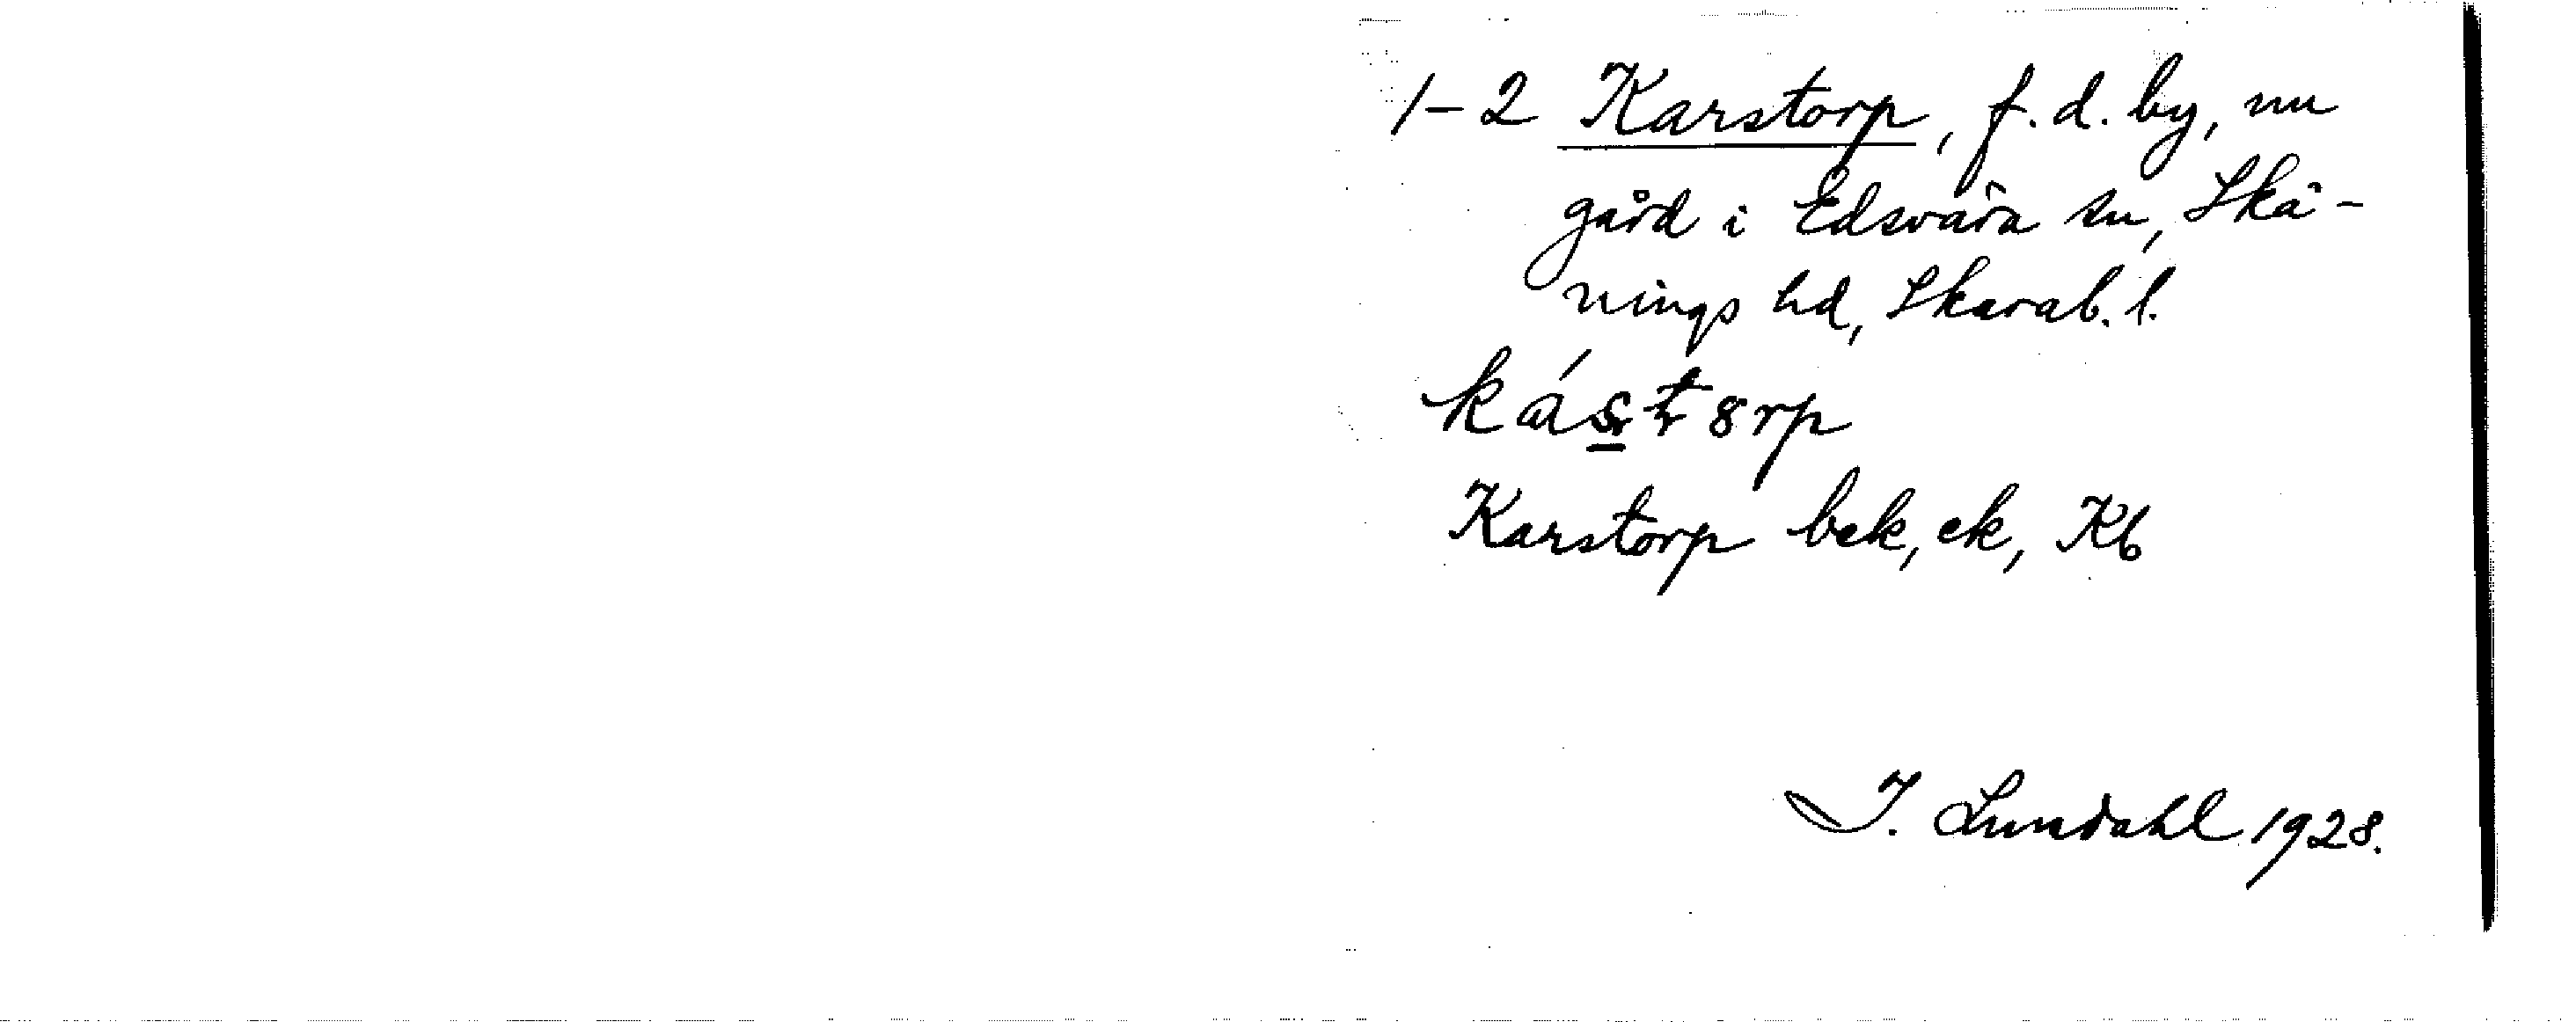 1-2 Karstorp, f.d. by, nu
gård i Edsvära sn, Skå-
nings hd, Skarab. l.
kástȣrp
Karstorp bek, ek, Kb
I. Lundahl 1928.